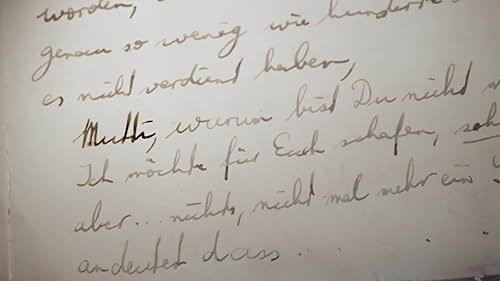 worden,
genau so wenig wie hunderte
es nicht verdient haben,
Mutti, warum bist Du nicht
Ich möchte für Euch schafen,
aber... nichts, nicht mal mehr ein
andeutet dass...